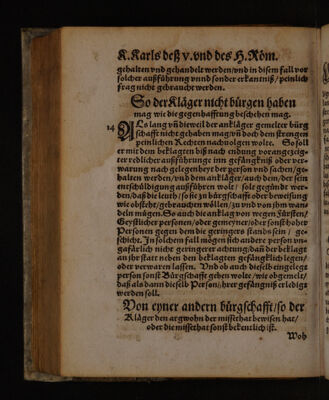 K. Karls deß v. vnd des H. Röm.
gehalten vnd gehandelt werden/vnd in disem fall vor
solcher außführung vnnd sonder erkantniß/peinlich
frag nicht gebraucht werden.
So der Kläger nicht bürgen haben
mag wie die gegenhafftung beschehen mag.
14
Als lang vñ dieweil der ankläger gemelter bürg
schafft nicht gehaben mag/vñ doch dem strengen
peinlichen Rechten nachuolgen wolte. So soll
er mit dem beklagten biß nach endung vorangezeig-
ter redlicher außführunge inn gefängkniß oder ver-
warung nach gelegenheyt der person vnd sachen/ge-
halten werden/vnd dem ankläger/auch dem/der sein
entschüldigung außführen wolt/ sole gegündt wer-
den/daß die leuth/so sie zu bürgschafft oder beweisung
wie obsteht/gebrauchen wöllen/zu vnd von ihm wan-
deln mügen. So auch die anklag von wegen Fürsten/
Geystlicher personen/oder gemeyner/oder sonst hoher
Personen gegen dem die geringers stands sein/ ge-
schicht. In solchem fall mögen sich andere person vn-
gefärlich nicht geringerer achtung/dañ der beklagt
an ihr statt neben den beklagten gefängklich legen/
oder verwaren lassen. Vnd ob auch dieselb eingelegt
person sonst Bürgschafft geben wolte/wie obgemelt/
daß als dann dieselb Person/ihrer gefängniß erledigt
werden soll.
Von eyner andern bürgschafft/so der
Kläger den argwohn der missethat bewisen hat/
oder die missethat sonst bekentlich ist.
Woh